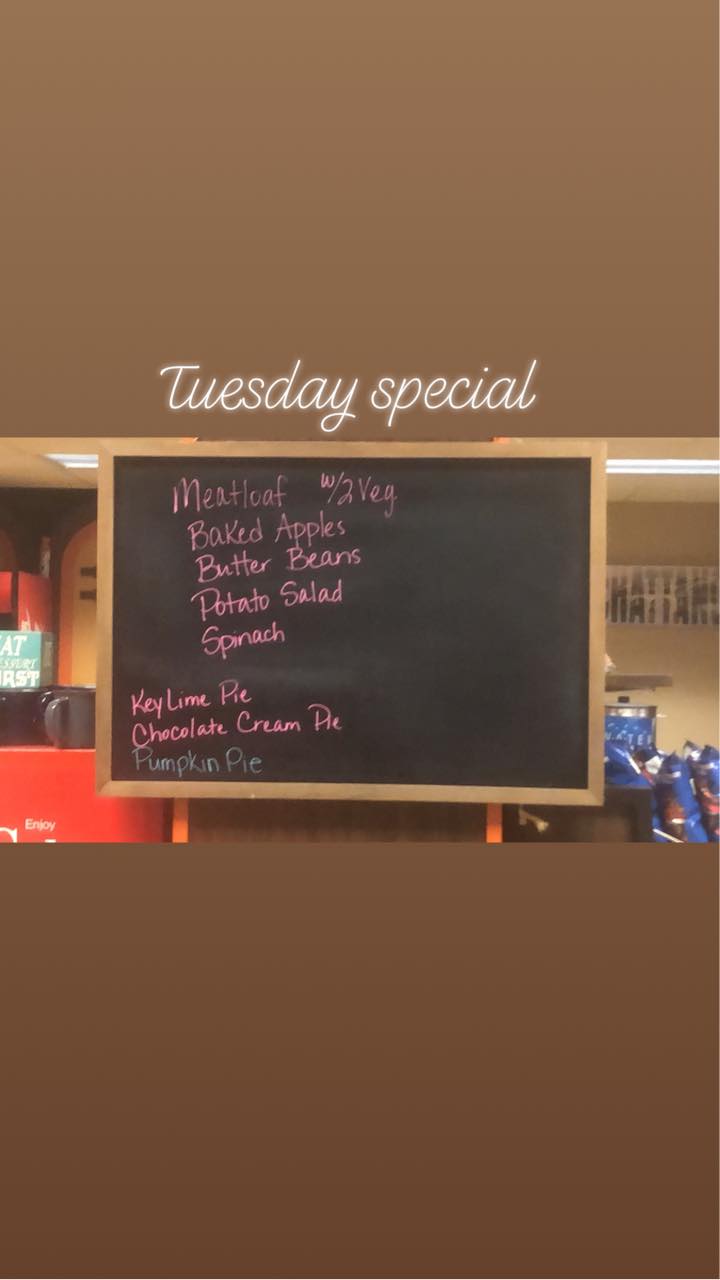 Tuesday special
Meatloaf w/2 Veg
Baked Apples
Butter Beans
Potato Salad
Spinach
Key Lime Pie
Chocolate Cream Pie
Pumpkin Pie
Enjoy